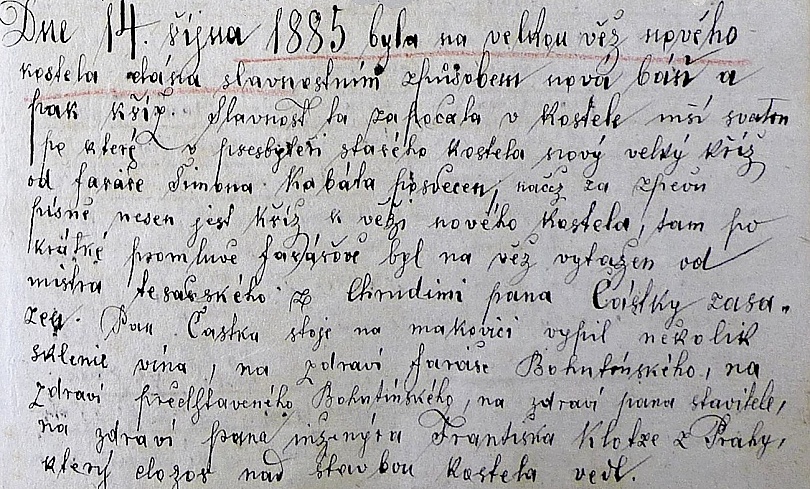 Dne 14. října 1885 byla na velkou věž nového
kostela dána slavnostním způsobem nová báň a
pak kříž. Slavnost ta započala v kostele mší svatou
po které v presbyteři starého kostela nový velký kříž
od faráře Šimona Kabáta posvěcen, načež za zpěvu
písně nesen jest kříž k věži nového kostela, tam po
krátké promluvě farářově byl na věž vytažen od
mistra tesařského z Chrudimi pana Částky zasa-
zen. Pan Částka stoje na makovici vypil několik
sklenic vína, na zdraví faráře Bohutínského, na
zdraví představeného Bohutínského, na zdraví pana stavitele,
na zdraví pana inženýra Františka Klotze z Prahy,
který dozor nad stavbou kostela vedl.